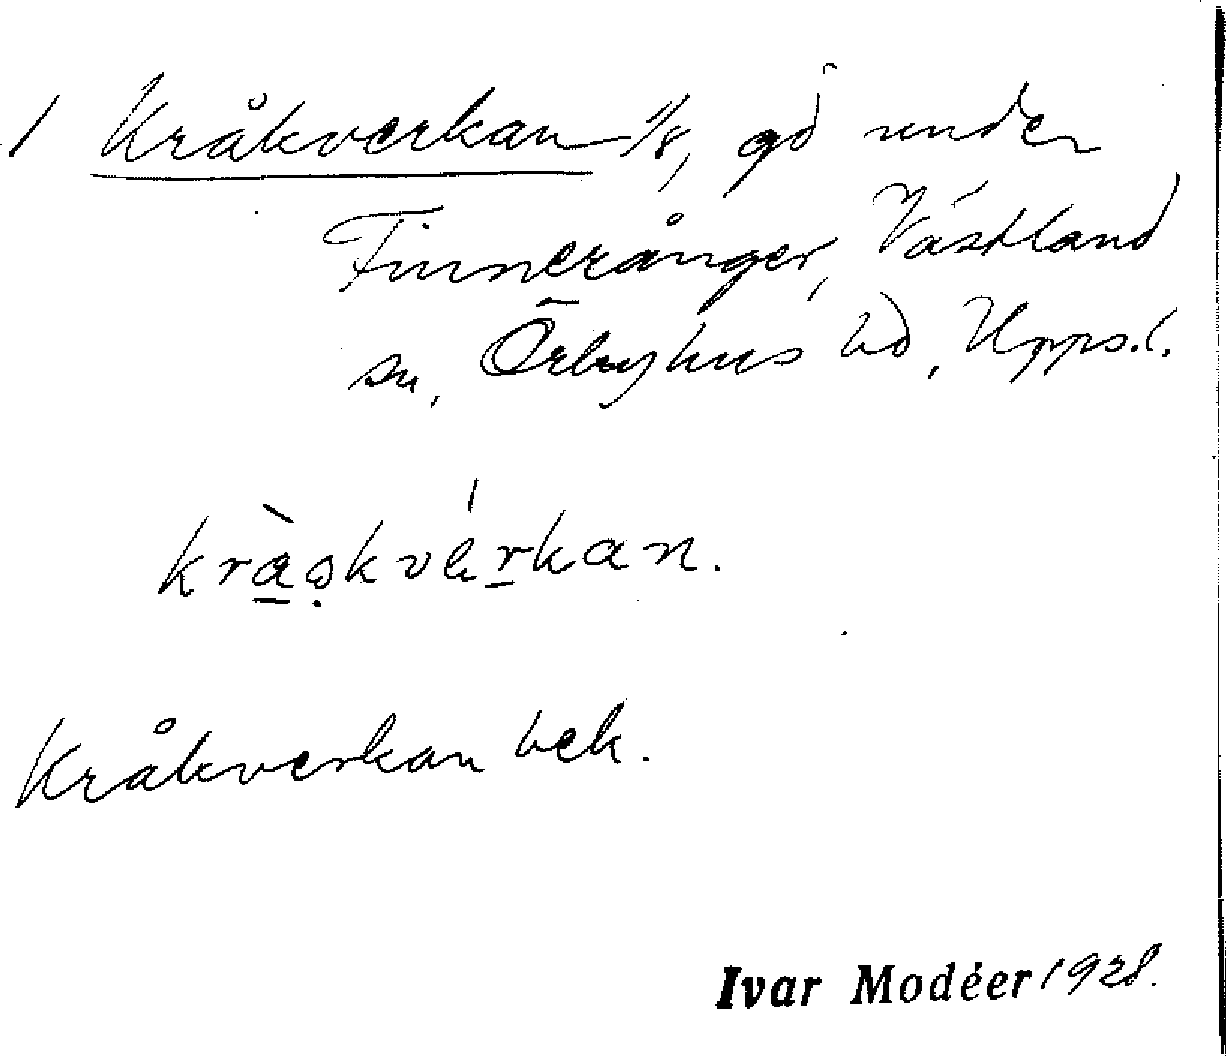 1 Kråkverkan 1/8, gd under
Finnerånger, Västland
sn, Örbyhus hd, Upps.l.
kràǫkvérkan.
Kråkverkan bek.
Ivar Modéer 1928.